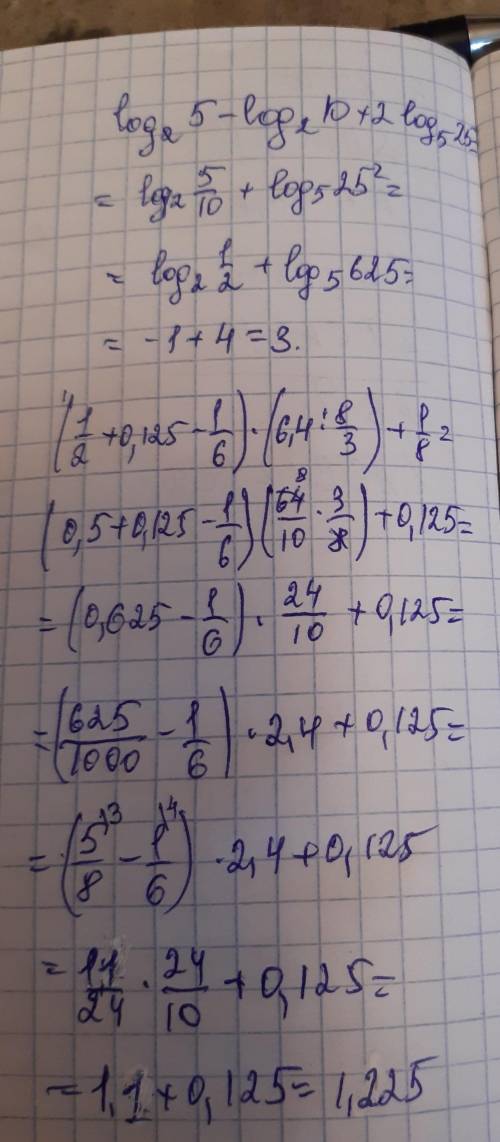 log₂ 5 - log₂ 10 + 2 log₅ 25 =
= log₂ 5/10 + log₅ 25² =
= log₂ 1/2 + log₅ 625 =
= -1 + 4 = 3.
(1/2 + 0,125 - 1/6) · (6,4 : 8/3) + 1/8 =
(0,5 + 0,125 - 1/6) (64/10 · 3/8) + 0,125 =
= (0,625 - 1/6) · 24/10 + 0,125 =
= (625/1000 - 1/6) · 2,4 + 0,125 =
= (5/8 \3 - 1/6 \4) · 2,4 + 0,125
= 11/24 · 24/10 + 0,125 =
= 1,1 + 0,125 = 1,225